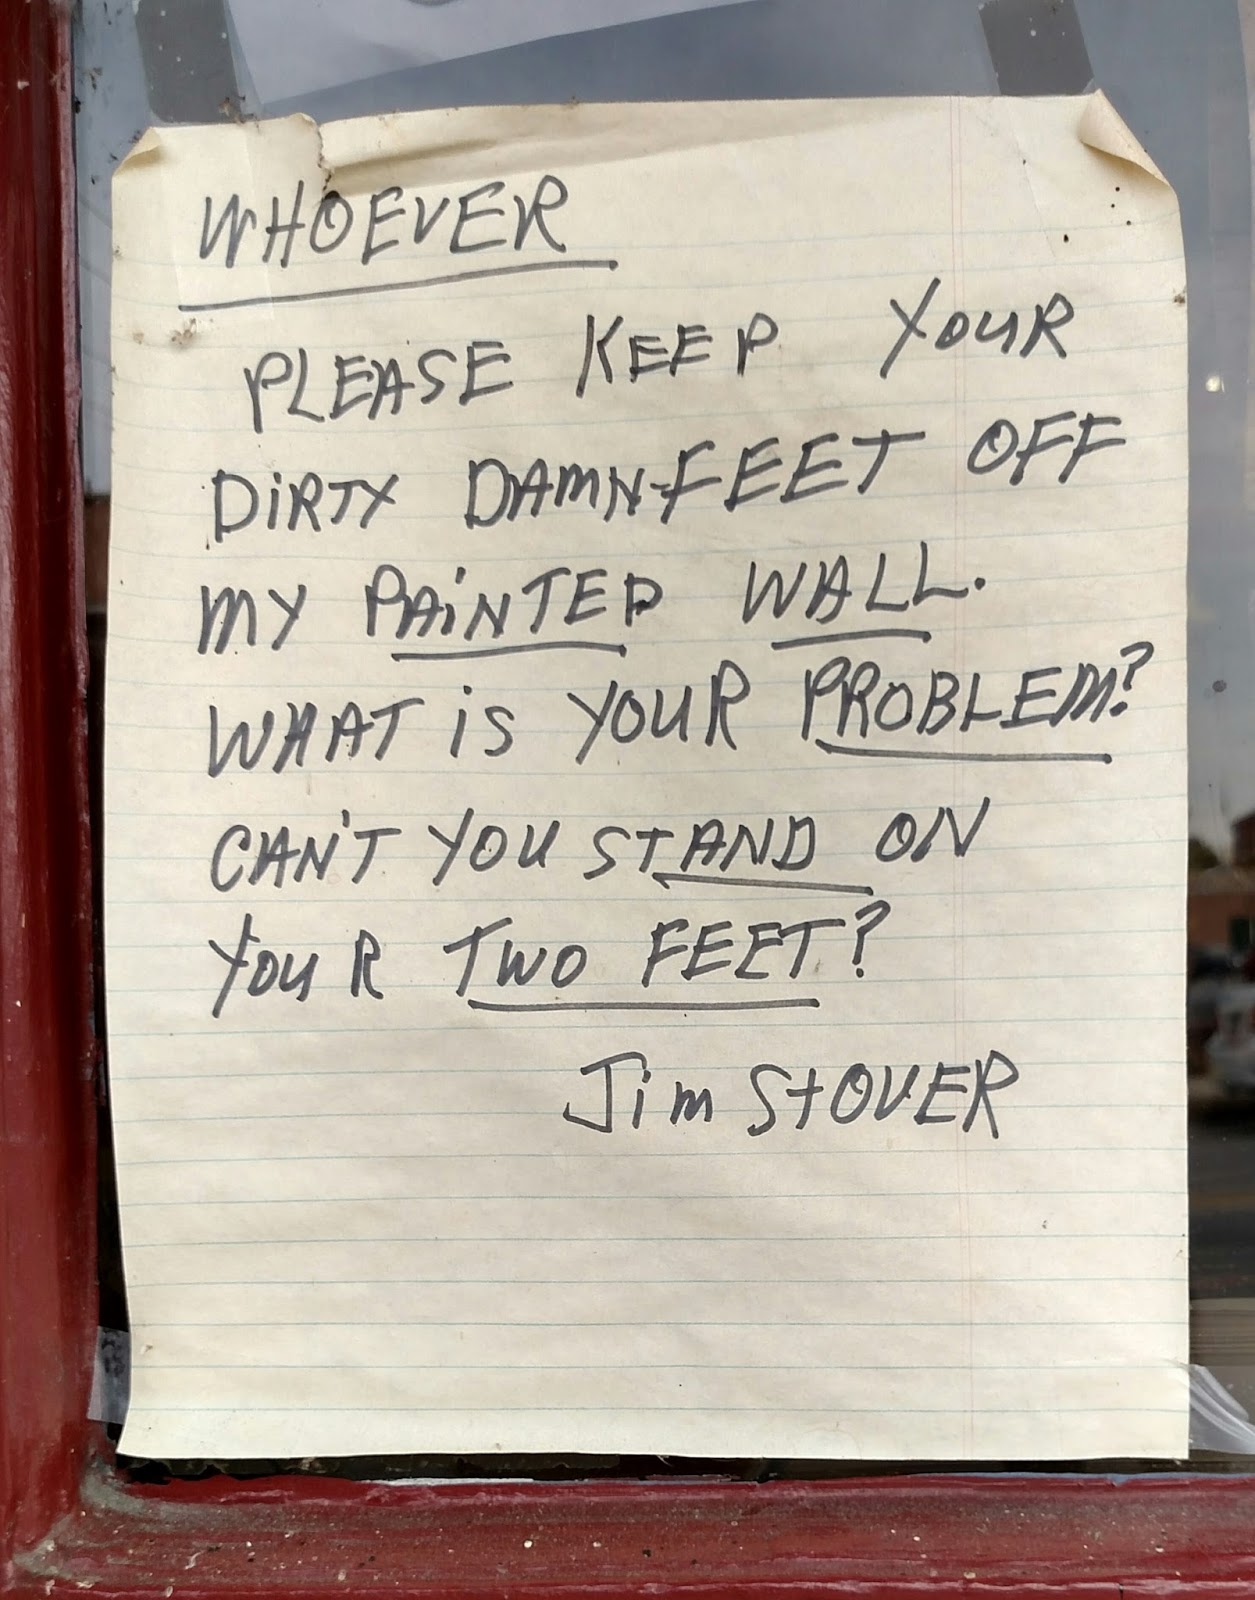 WHOEVER
PLEASE KEEP YOUR
DiRTY DAMN-FEET OFF
MY PAiNTED WALL.
WHAT iS YOUR PROBLEM?
CAN'T YOU STAND ON
YOUR TWO FEET?
Jim StOVER